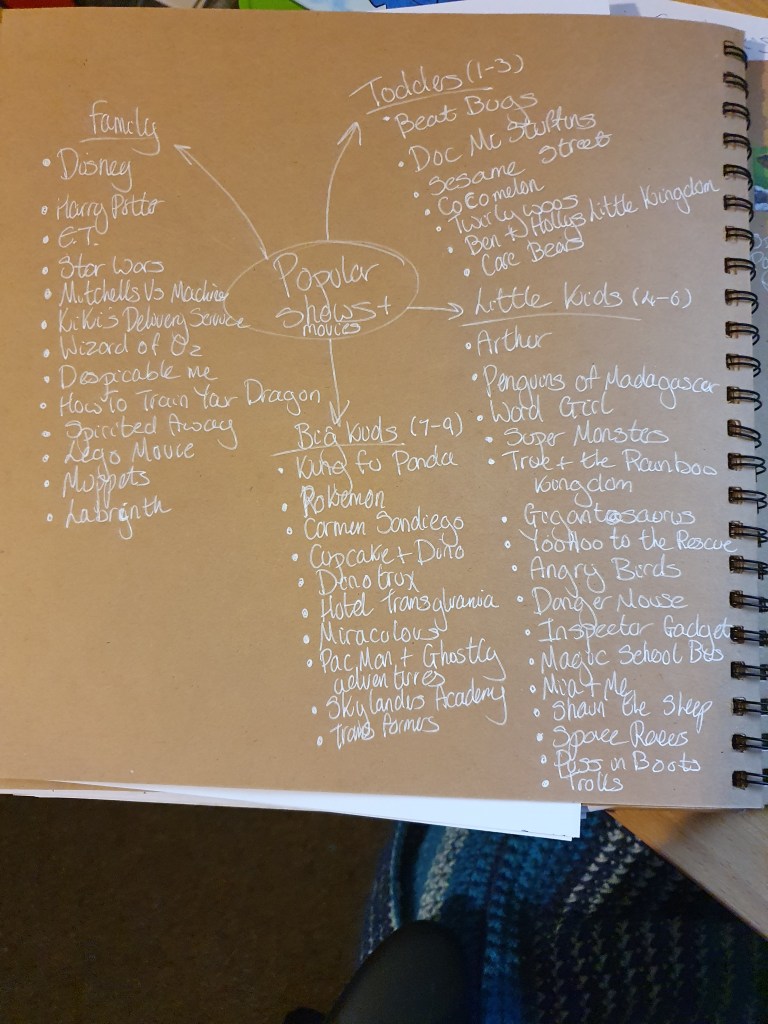 Popular
shows +
movies
Family
• Disney
• Harry Potter
• E.T.
• Star Wars
• Mitchells Vs Machine
• KiKi's Delivery Service
• Wizard of Oz
• Despicable me
• How To Train Your Dragon
• Spirited Away
• Lego Movie
• Muppets
• Labrynth
Toddles (1-3)
• Beat Bugs
• Doc Mc Stuffins
• Sesame Street
• Cocomelon
• Twirlywoos
• Ben + Hollys Little Kingdom
• Care Bears
Little Kids (4-6)
• Arthur
• Penguins of Madagascar
• Word Girl
• Super Monsters
• True + the Rainboo
Kingdom
• Gigantosaurus
• YooHoo to the Rescue
• Angry Birds
• Danger Mouse
• Inspector Gadget
• Magic School Bus
• Mia + Me
• Shaun the Sheep
• Space Racers
• Puss in Boots
• Trolls
Big Kids (7-9)
• Kung fu Panda
• Pokemon
• Carmen Sandiego
• Cupcake + Dino
• Dinotrux
• Hotel Transylvania
• Miraculous
• Pac Man + Ghostly
adventures
• Skylanders Academy
• Transformers